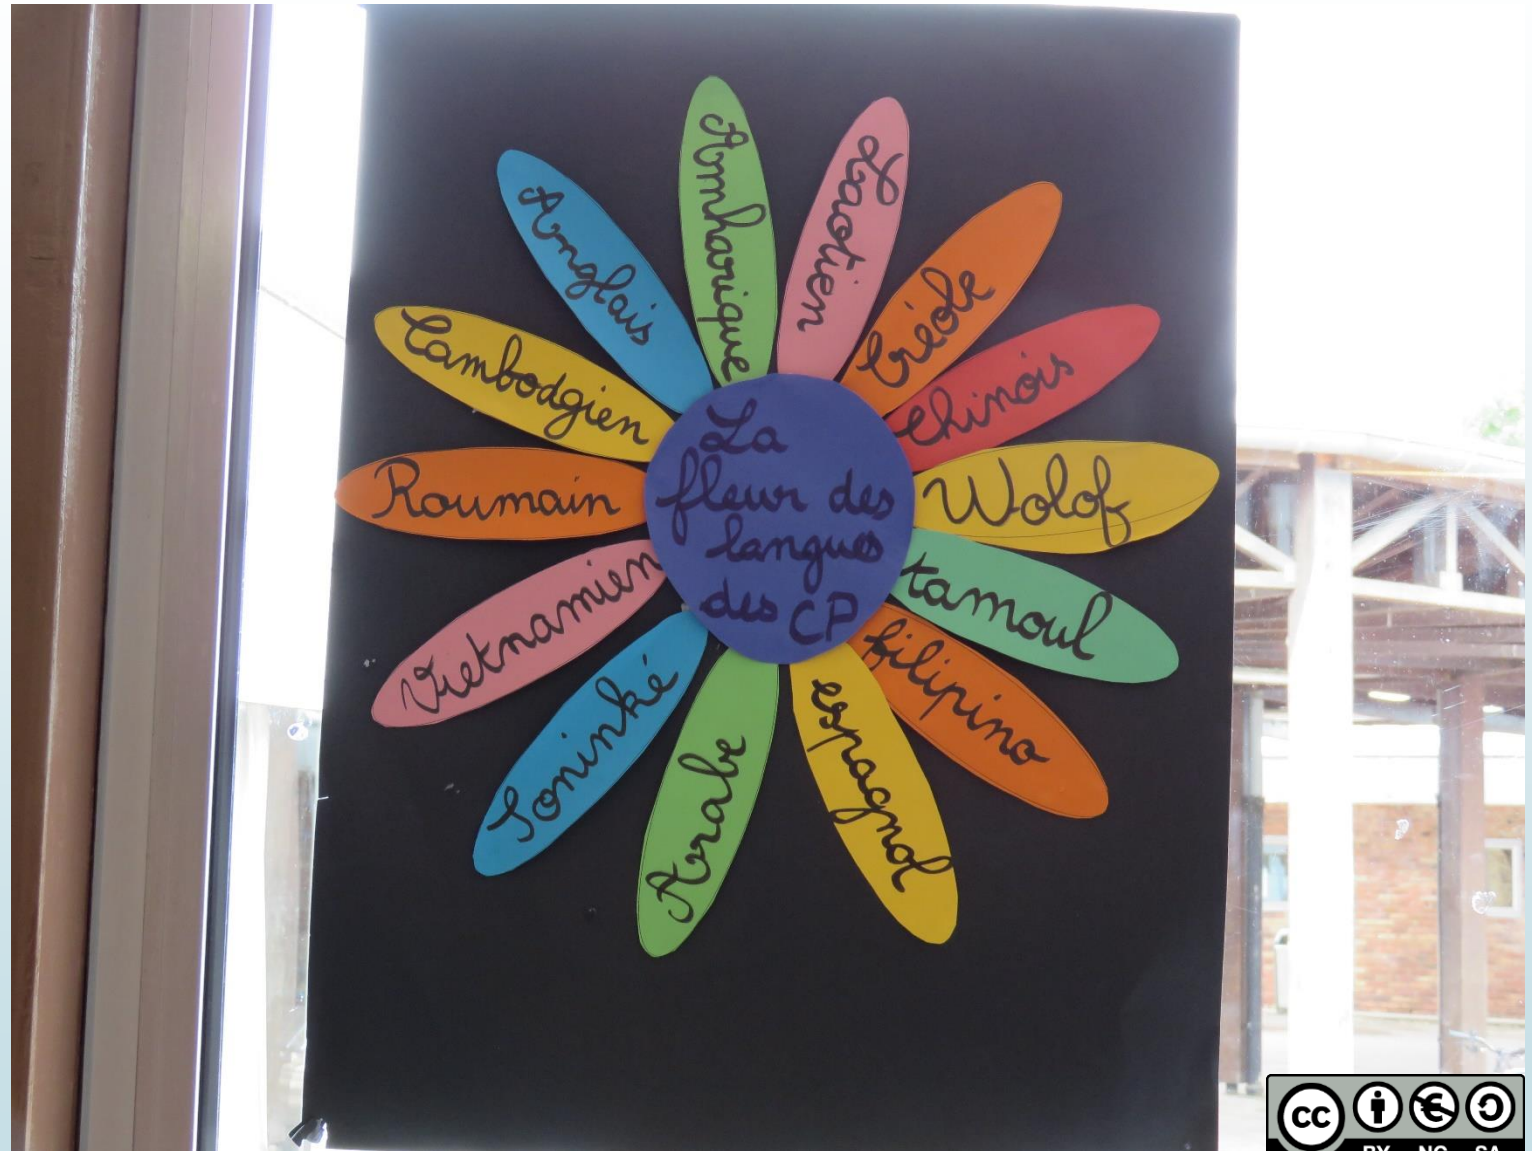 La
fleur des
langues
des CP
Amharique
Laotien
Créole
Chinois
Wolof
tamoul
filipino
espagnol
Arabe
Soninké
Vietnamien
Roumain
Cambodgien
Anglais
cc
BY NC SA